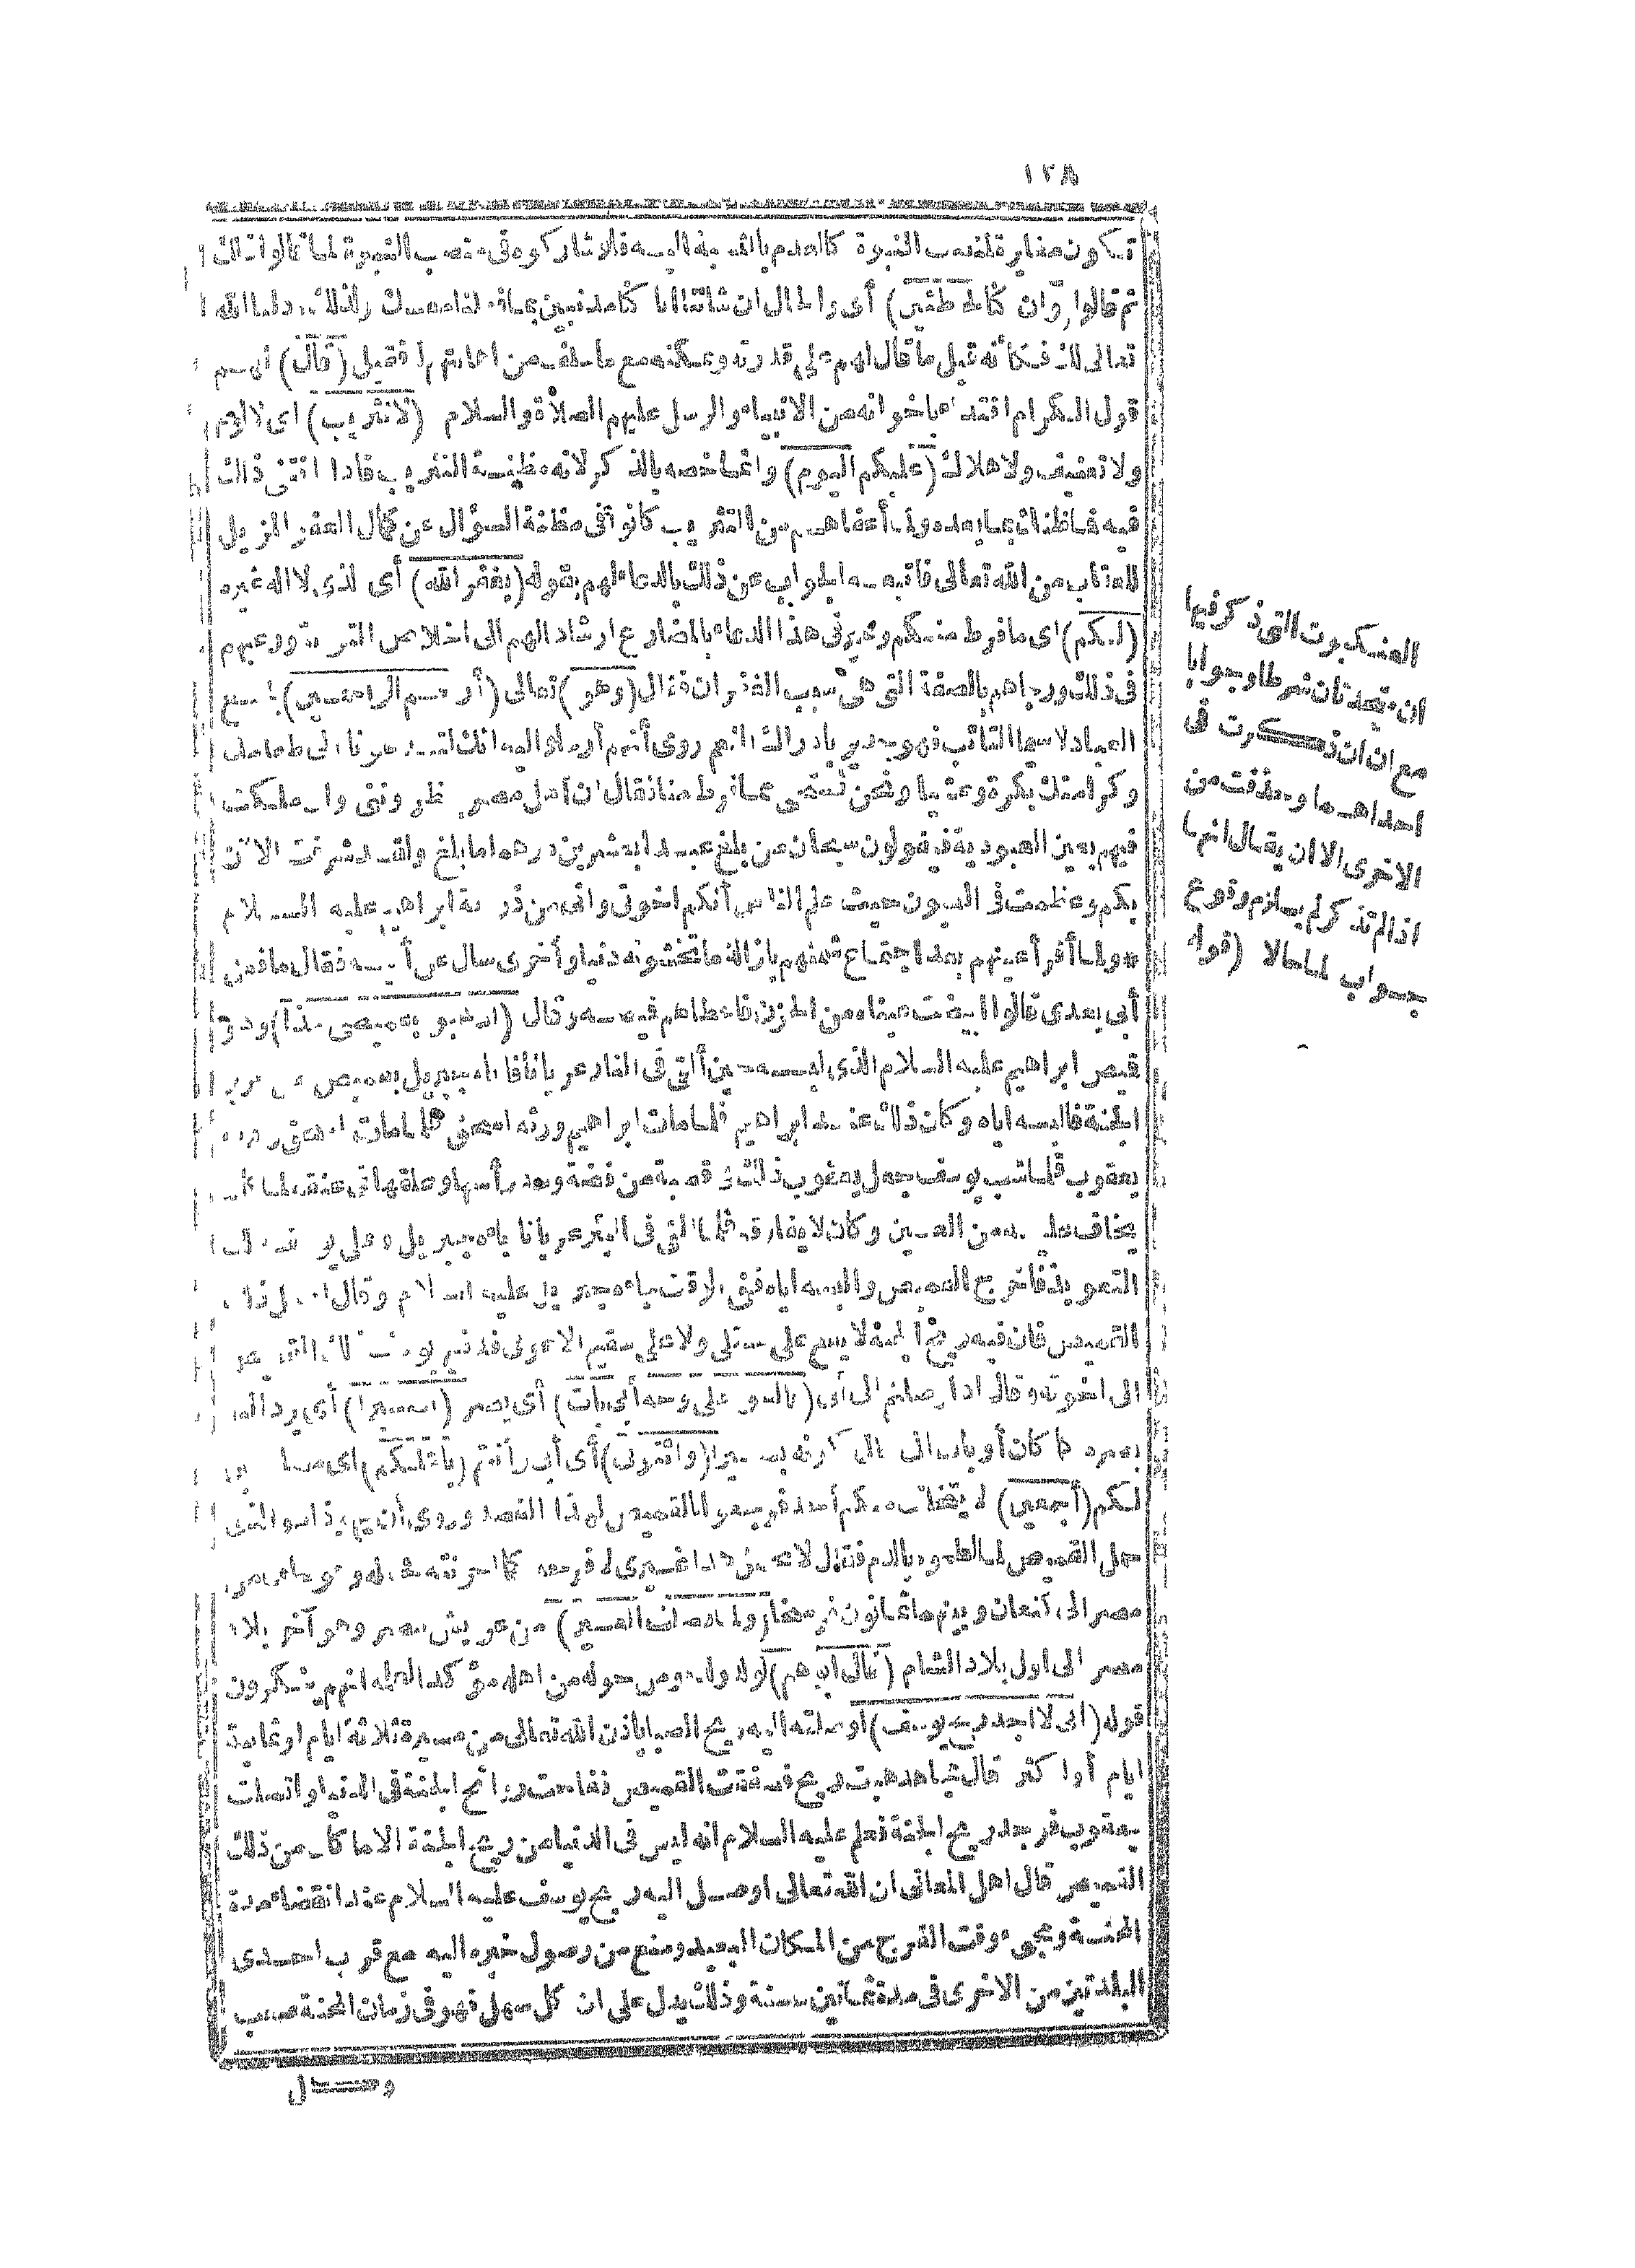 ١٢٨
تكون مغايرة لمنصب النبوة كالعلم بالنسبة اليه فلا شاركوه في منصب النبوة لما قالوا ذلك
ثم قالوا (وان كنا لخاطئين) أى والحال ان شأننا انا كنا مذنبين بما فعلنا معك ولذلك
تعالى لك فكأنه قيل ما قال لهم على قدرته وتمكنه مع ما سلف من اهانتهم له فقيل (قال)
قول الكرام اقتداء باخوانه من الانبياء والرسل عليهم الصلاة والسلام (لا تثريب) اى لا لوم
ولا تعنيف ولا هلاك (عليكم اليوم) وانما خصه بالذكر لانه مظنة التثريب فاذا انتفى ذلك
فيه فما ظنك بما بعده ولما أعفاهم من التثريب كانوا فى مظنة السؤال عن كمال العفو المزيل
للعتاب من الله تعالى فأتبعه الجواب عن ذلك بالدعاء لهم بقوله (يغفر الله) أى الذى لا اله غيره
(لكم) اى ما فرط منكم وعبر فى هذا الدعاء بالمضارع ارشادا لهم الى اخلاص التوبة ورغبهم
فى ذلك ورجاهم بالصفة التى هى سبب الغفران فقال (وهو) تعالى (أرحم الراحمين) لجميع
العباد لا سيما التائب فهو جدير بادراك النعم روى أنهم أرسلوا اليه انك لتدعونا الى طعامك
وكرامتك بكرة وعشيا ونحن نستحى مما فرط منا فقال ان أهل مصر وان ملكت
فيهم بعين العبودية فيقولون سبحان من بلغ عبدا بعشرين درهما ما بلغ ولقد شرفت الآن
بكم وعظمت فى العيون حيث علم الناس أنكم اخوتى وانى من ذرية ابراهيم عليه السلام
* ولما أقر أعينهم بعد اجتماع شملهم بازالة ما تخشونه دنيا وأخرى سال عن أبيه فقال ما فعل
أبى بعدى قالوا ابيضت عيناه من الحزن فاعطاهم قميصه وقال (اذهبوا بقميصى هذا) وهو
قميص ابراهيم عليه السلام الذى لبسه حين ألقى فى النار عريانا فاتاه جبريل بقميص من حرير
الجنة فالبسه اياه وكان ذلك عند ابراهيم فلما مات ابراهيم ورثه اسحق فلما مات اسحق ورثه
يعقوب فلما شب يوسف جعل يعقوب ذلك فى قصبة من فضة وسد رأسها وعلقها فى عنقه لما كان
يخاف عليه من العين وكان لا يفارقه فلما ألقى فى البئر عريانا جاءه جبريل وعلى يوسف ذلك
التعويذ فاخرج القميص والبسه اياه ففى الوقت جاءه جبريل عليه السلام وقال ارسل ذلك
القميص فان فيه ريح الجنة لا يقع على مبتلى ولا على سقيم الا عوفى فدفع يوسف ذلك القميص
الى اخوته وقال اذا وصلتم الى أبى (فالقوه على وجه أبى يأت) أى يصر (بصيرا) أى يرد اليه
بصره كما كان أو يأت الى حال كونه بصيرا (وائتونى) أى أبى وأنتم (بأهلكم) اى
لكم (أجمعين) لا يتخلف منكم أحد فرجعوا بالقميص لهذا القصد وروى أن يهوذا هو الذى
حمل القميص لما لطخوه بالدم فقال لا يحمل هذا غيرى لافرحه كما احزنته فحمله وهو حاف من
مصر الى كنعان وبينهما ثمانون فرسخا (ولما فصلت العير) من عريش مصر وهو آخر بلاد
مصر الى اول بلاد الشام (قال أبوهم) لولد ولده ومن حوله من اهله مؤكدا لعلمه انهم ينكرون
قوله (انى لا اجد ريح يوسف) اوصلته اليه ريح الصبا باذن الله تعالى من مسيرة ثلاثة ايام او ثمانية
ايام أو اكثر قال مجاهد هبت ريح فصفقت القميص ففاحت روائح الجنة فى الدنيا واتصلت
بيعقوب فوجد ريح الجنة فعلم عليه السلام انه ليس فى الدنيا من ريح الجنة الا ما كان من ذلك
القميص قال اهل المعانى ان الله تعالى اوصل اليه ريح يوسف عليه السلام عند انقضاء مدة
المحنة ومجىء وقت الفرج من المكان البعيد ومنع من وصول خبره اليه مع قرب احدى
البلدتين من الاخرى فى مدة ثمانين سنة وذلك يدل على ان كل سهل فهو فى زمان المحنة صعب
وكل
العنكبوت التى ذكر فيها
ان متحدتان شرطا وجوابا
مع ان ان ذكرت فى
احداهما وحذفت من
الاخرى الا ان يقال انها
اذا لم تذكر لم يلزم وقوع
جواب لما حالا (قوله